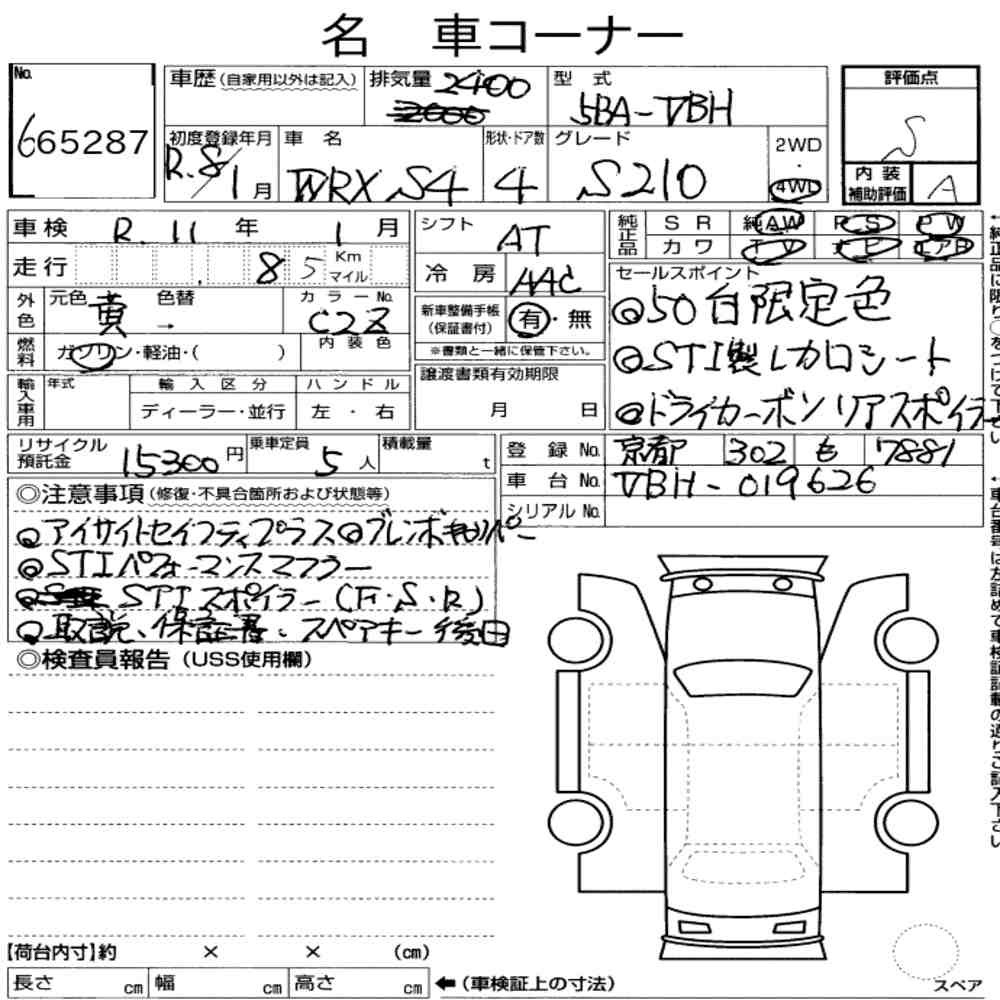 名 車コーナー
No.
665287
車歴(自家用以外は記入)
排気量 2400
2000
型式
5BA-VBH
評価点
S
初度登録年月
R.8/1月
車名
WRX S4
形状・ドア数
4
グレード
S210
2WD
・
4WD
内装
補助評価
A
車検 R.11年 1月
走行 85 Km
マイル
シフト
AT
冷房 AAC
純正品
SR 純AW PS PW
カワ TV ナビ エアB
セールスポイント
◎50台限定色
◎STI製レカロシート
◎ドライカーボンリアスポイラー
外色
元色 黄 → 色替
カラーNo.
C2Z
燃料
ガソリン・軽油・( )
内装色
新車整備手帳
(保証書付)
有・無
※書類と一緒に保管下さい。
輸入車用
年式
輸入区分
ディーラー・並行
ハンドル
左・右
譲渡書類有効期限
月 日
リサイクル
預託金 15300円
乗車定員
5人
積載量
t
登録No. 京都 302 も 7881
車台No. VBH-019626
シリアルNo.
◎注意事項(修復・不具合箇所および状態等)
◎アイサイトセイフティプラス◎ブレンボキャリパー
◎STIパフォーマンスマフラー
◎STIスポイラー(F・S・R)
◎取説、保証書、スペアキー後日
◎検査員報告(USS使用欄)
【荷台内寸】約 × × (cm)
長さ cm 幅 cm 高さ cm ←(車検証上の寸法)
スペア
←純正品に限り○をつけて下さい
←車台番号は左詰めで車検証記載の通りご記入下さい